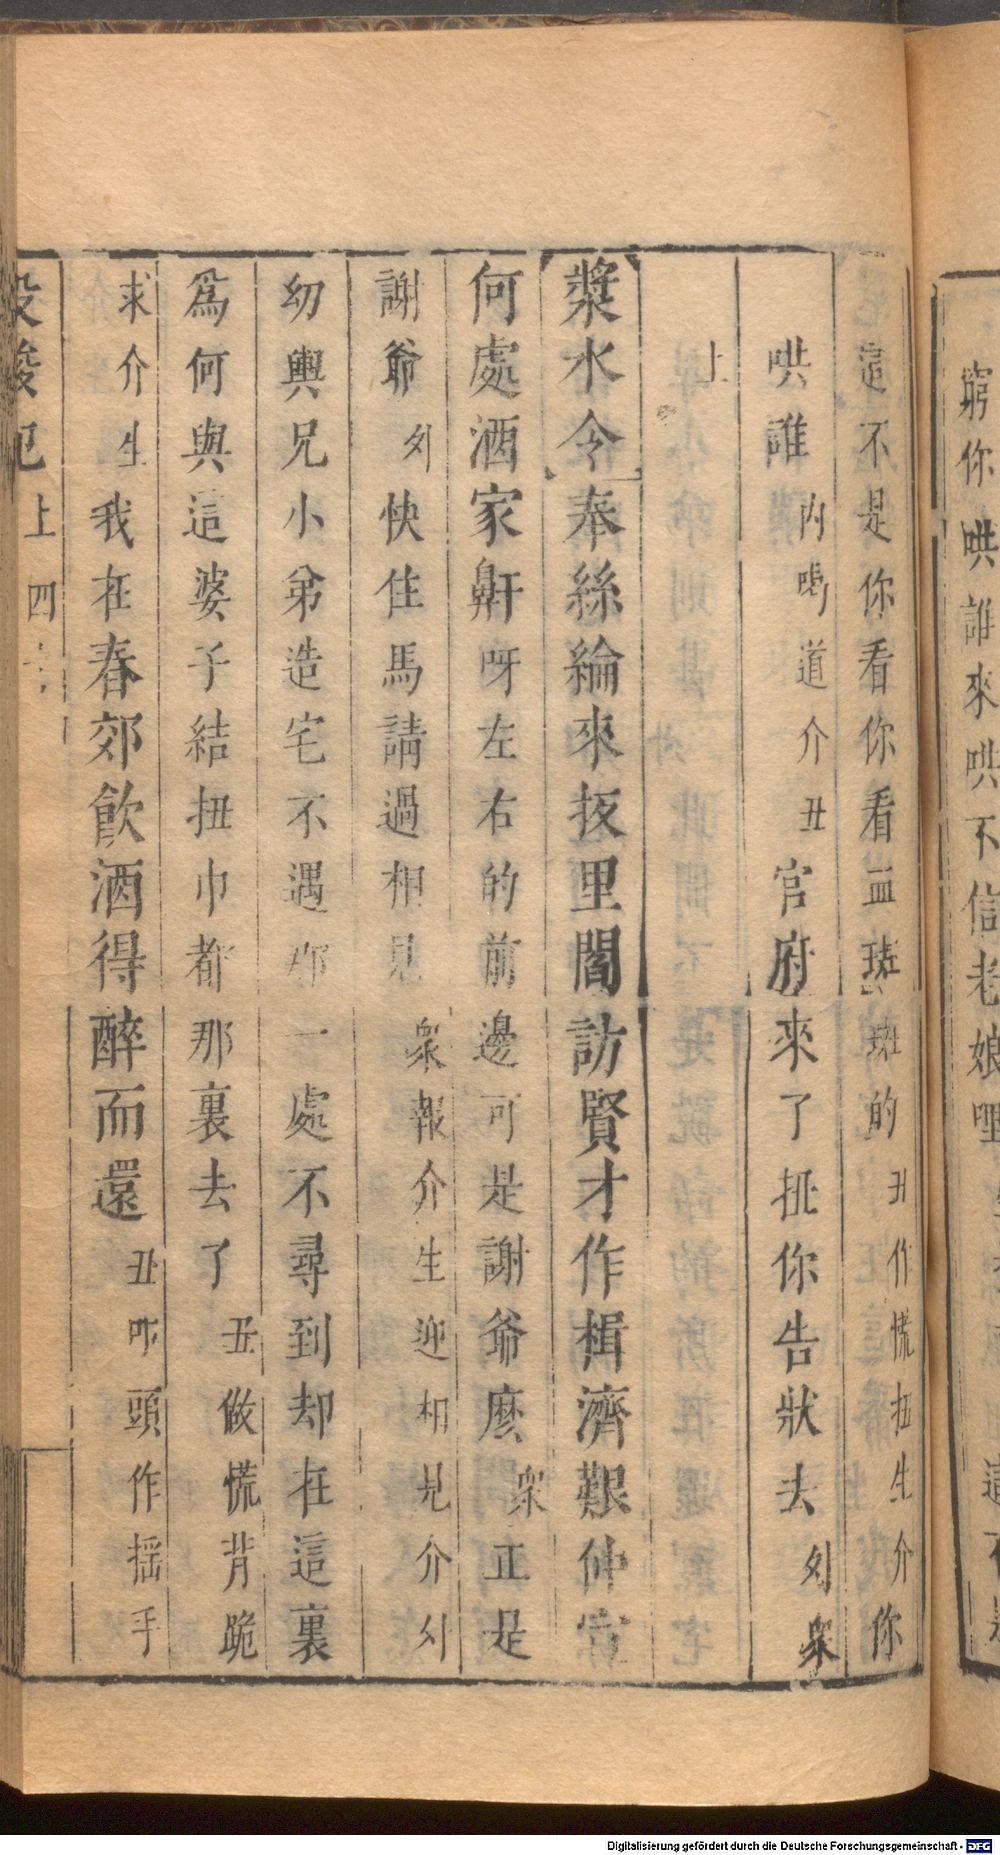 窮你哄誰來哄不信老娘哩
這不是你看你看血班班的丑作慌扭生介你
哄誰內喝道介丑官府來了扯你告狀去外衆
上
漿水令奉絲綸來扳里閭訪賢才作楫濟艱仲容
何處酒家鼾呀左右的前邊可是謝爺麽衆正是
謝爺外快住馬請過相見衆報介生迎相見介外
幼輿兄小弟造宅不遇那一處不尋到却在這裏
爲何與這婆子結扭巾都那裏去了丑做慌背跪
求介生我在春郊飮酒得醉而還丑叩頭作揺手
投梭記上四
Digitalisierung gefördert durch die Deutsche Forschungsgemeinschaft - DFG